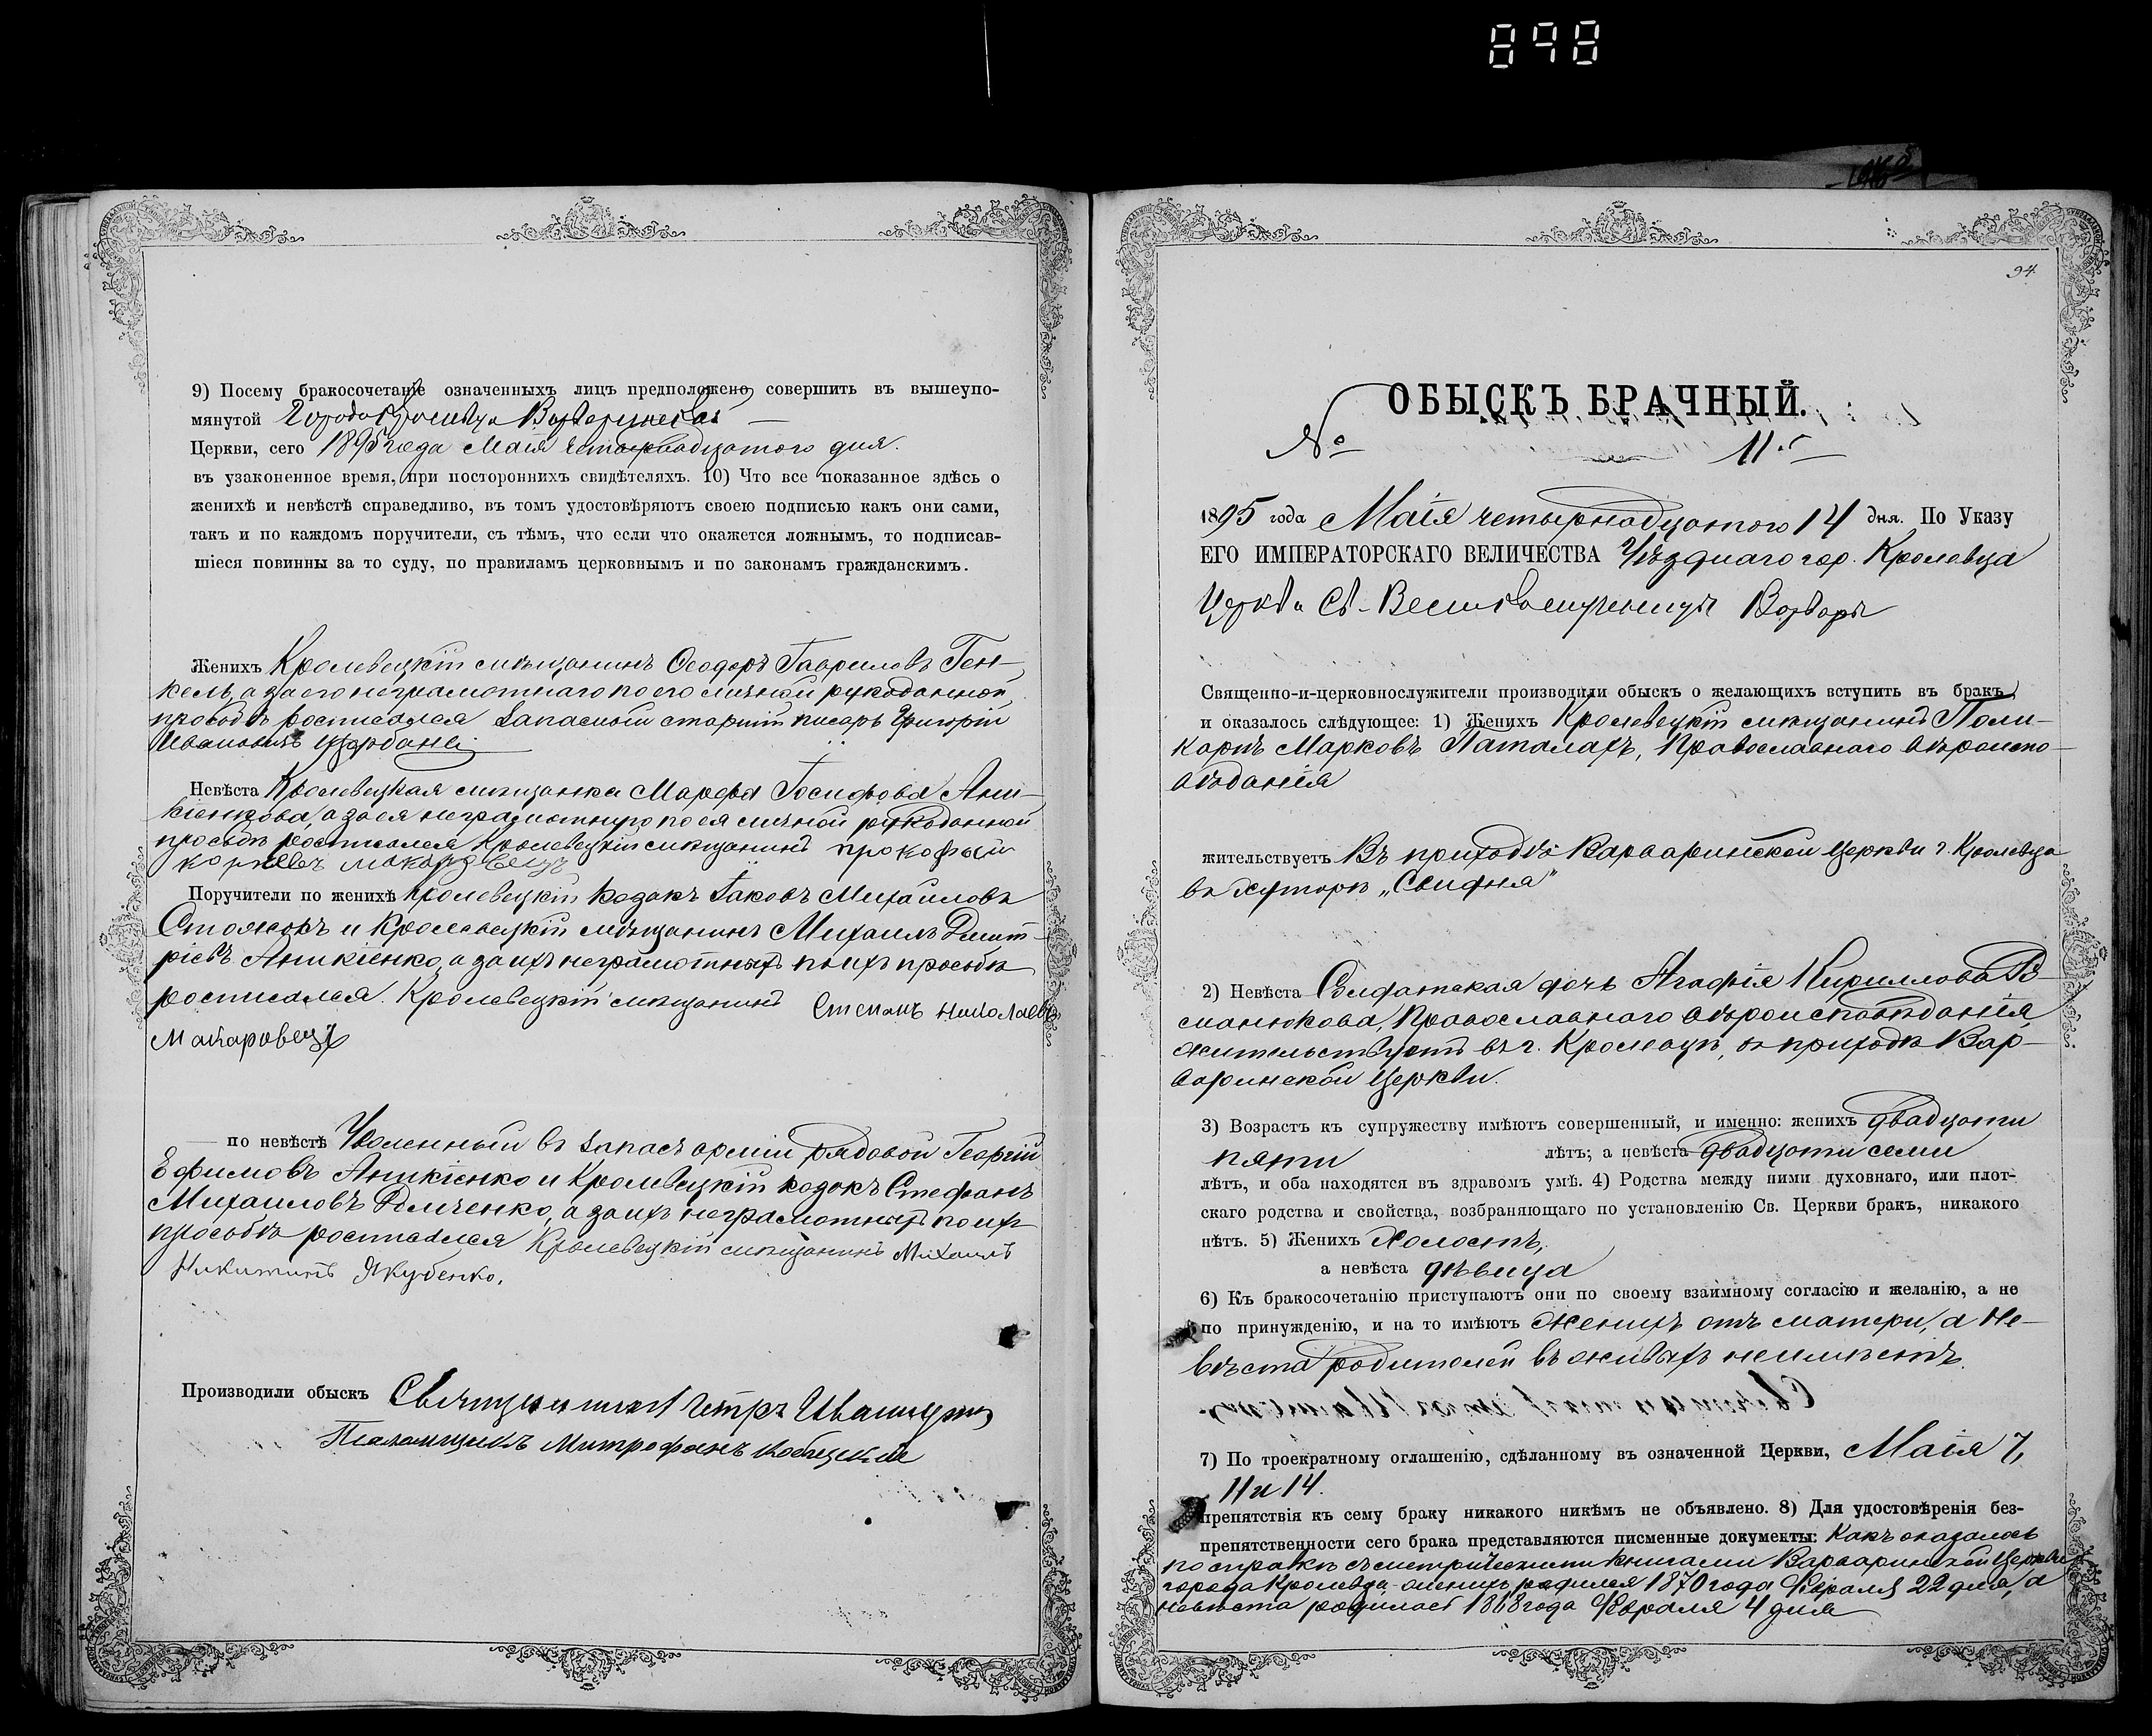 898
9) Посему бракосочетаніе означенныхъ лицъ предположено совершить въ вышеупо-
мянутой Города Кролевца Варваринской
Церкви, сего 1895 года Маія четырнадцатого дня.
въ узаконенное время, при постороннихъ свидѣтеляхъ. 10) Что все показанное здѣсь о
женихѣ и невѣстѣ справедливо, въ томъ удостовѣряютъ своею подписью какъ они сами,
такъ и по каждомъ поручители, съ тѣмъ, что если что окажется ложнымъ, то подписав-
шіеся повинны за то суду, по правиламъ церковнымъ и по законамъ гражданскимъ.
Женихъ Кролевецкій мѣщанинъ Ѳеодоръ Гавриловъ Ген-
кель, а за его неграмотнаго по его личной рукоданной
просьбѣ росписался Запасный старшій писарь Григорій
Ивановичъ
Невѣста Кролевецкая мѣщанка Марфа Іосифова Ани-
кіенкова, а за ея неграмотную по ея личной рукоданной
просьбѣ росписался Кролевецкій мѣщанинъ прокофый
Поручители по женихѣ Кролевецкій козакъ Іаковъ Михайловъ
и Кролевецкій мѣщанинъ Михаилъ Дмит-
ріевъ Аникіенко, а за ихъ неграмотныхъ по ихъ просьбѣ
росписался Кролевецкій мѣщанинъ Степанъ Николаевъ
Макаровецъ
по невѣстѣ Уволенный въ запасъ арміи рядовой Георгій
Ефимовъ Аникіенко и Кролевецкій козакъ Стефанъ
Михайловъ а за ихъ неграмотныхъ по ихъ
просьбѣ росписался Кролевецкій мѣщанинъ Михаилъ
Никитинъ Якубенко.
Производили обыскъ Священникъ Петръ
Псаломщикъ Митрофанъ
94
ОБЫСКЪ БРАЧНЫЙ.
№ 11.
1895 года Маія четырнадцатого 14 дня. По Указу
ЕГО ИМПЕРАТОРСКАГО ВЕЛИЧЕСТВА Уѣзднаго гор. Кролевца
Церкви Св. Великомученицы Варвары
Священно-и-церковнослужители производили обыскъ о желающихъ вступить въ бракъ
и оказалось слѣдующее: 1) Женихъ Кролевецкій мѣщанинъ Поли-
карпъ Марковъ Паталахъ, Православнаго вѣроиспо-
вѣданія
жительствуетъ Въ приходѣ Варваринской Церкви г. Кролевца
въ хуторѣ „Свидня"
2) Невѣста Солдатская дочь Агафія Кириллова Ро-
манюкова, Православнаго вѣроисповѣданія
жительствуетъ въ г. Кролевцѣ, въ приходѣ Вар-
варинской Церкви.
3) Возрастъ къ супружеству имѣютъ совершенный, и именно: женихъ двадцати
пяти лѣтъ; а невѣста двадцати семи
лѣтъ, и оба находятся въ здравомъ умѣ. 4) Родства между ними духовнаго, или плот-
скаго родства и свойства, возбраняющаго по установленію Св. Церкви бракъ, никакого
нѣтъ. 5) Женихъ Холостъ,
а невѣста дѣвица
6) Къ бракосочетанію приступаютъ они по своему взаимному согласію и желанію, а не
по принужденію, и на то имѣютъ Женихъ отъ матери, а Не-
вѣста родителей въ живыхъ неимѣетъ.
7) По троекратному оглашенію, сдѣланному въ означенной Церкви, Маія 7,
11 и 14.
препятствія къ сему браку никакого никѣмъ не объявлено. 8) Для удостовѣренія без-
препятственности сего брака представляются писменные документы: Какъ оказалось
по справкѣ съ метрическими книгами Варваринской Церкви
города Кролевца женихъ родился 1870 года Февраля 22 дня, а
невѣста родилась 1868 года Февраля 4 дня